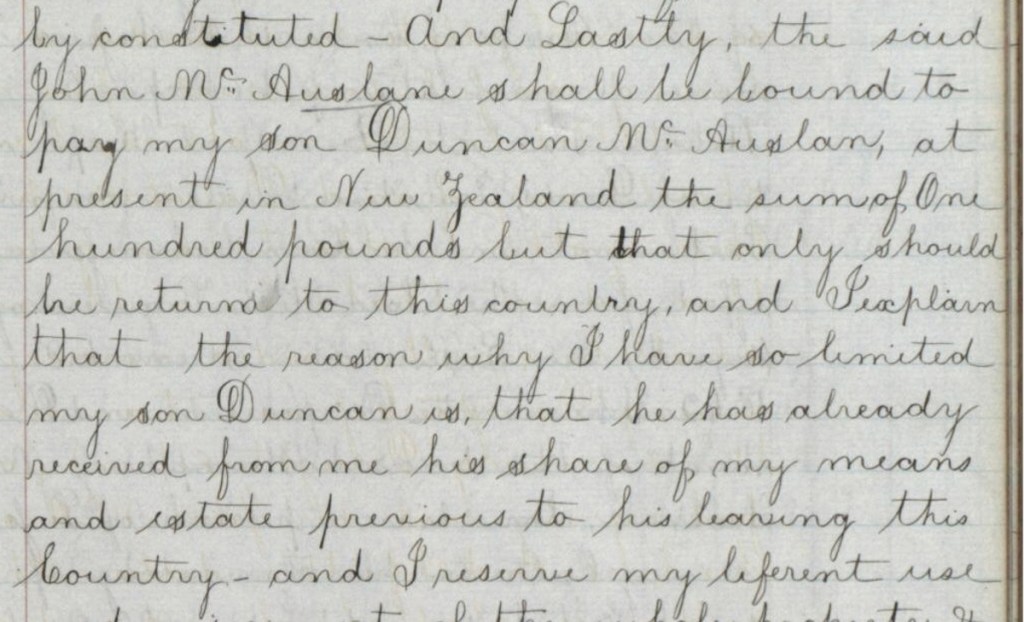 by constituted - And Lastly, the said
John Mc. Auslane shall be bound to
pay my son Duncan Mc. Auslan, at
present in New Zealand the sum of One
hundred pounds but that only should
he return to this country, and I explain
that the reason why I have so limited
my son Duncan is, that he has already
received from me his share of my means
and estate previous to his leaving this
Country - and I reserve my liferent use